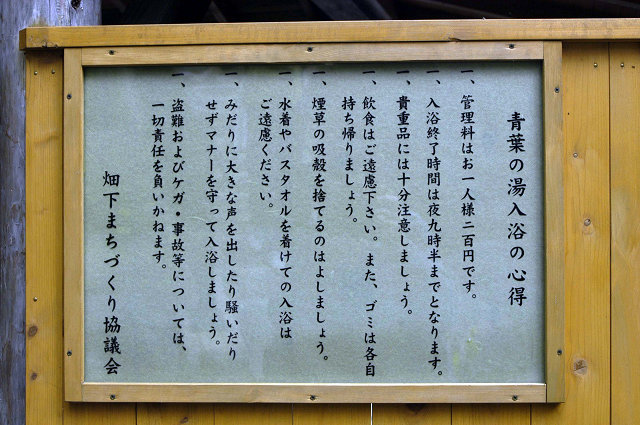 青葉の湯入浴の心得
一、管理料はお一人様二百円です。
一、入浴終了時間は夜九時半までとなります。
一、貴重品には十分注意しましょう。
一、飲食はご遠慮下さい。また、ゴミは各自
持ち帰りましょう。
一、煙草の吸殻を捨てるのはよしましょう。
一、水着やバスタオルを着けての入浴は
ご遠慮ください。
一、みだりに大きな声を出したり騒いだり
せずマナーを守って入浴しましょう。
一、盗難およびケガ・事故等については、
一切責任を負いかねます。
畑下まちづくり協議会